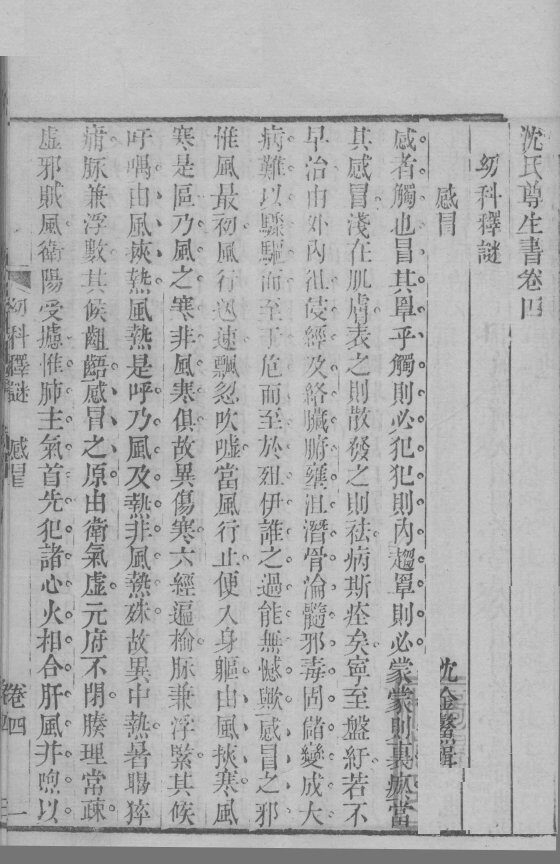 沈氏尊生書卷四
幼科釋謎
感冒 沈金鰲輯
感者觸也冒其罩乎觸則必犯犯則內趨罩則必蒙蒙則裹瘀當
其感冒淺在肌膚表之則散發之則祛病斯痊矣寧至盤紆若不
早治由外內徂侵經及絡臟腑壅沮潛骨淪髓邪毒固儲變成大
病難以驟驅而至于危而至於殂伊誰之過能無憾歟感冒之邪
惟風最初風行迅速飄忽吹噓當風行止便入身軀由風挾寒風
寒是區乃風之寒非風寒俱故異傷寒六經遍橅脈兼浮緊其候
吁喁由風挾熱風熱是呼乃風及熱非風熱殊故異中熱暑暍猝
痡脈兼浮數其候齟齬感冒之原由衛氣虛元府不閉腠理常疎
虛邪賊風衛陽受攄惟肺主氣首先犯諸心火相合肝風并煦以
幼科釋謎 感冒 卷四 一